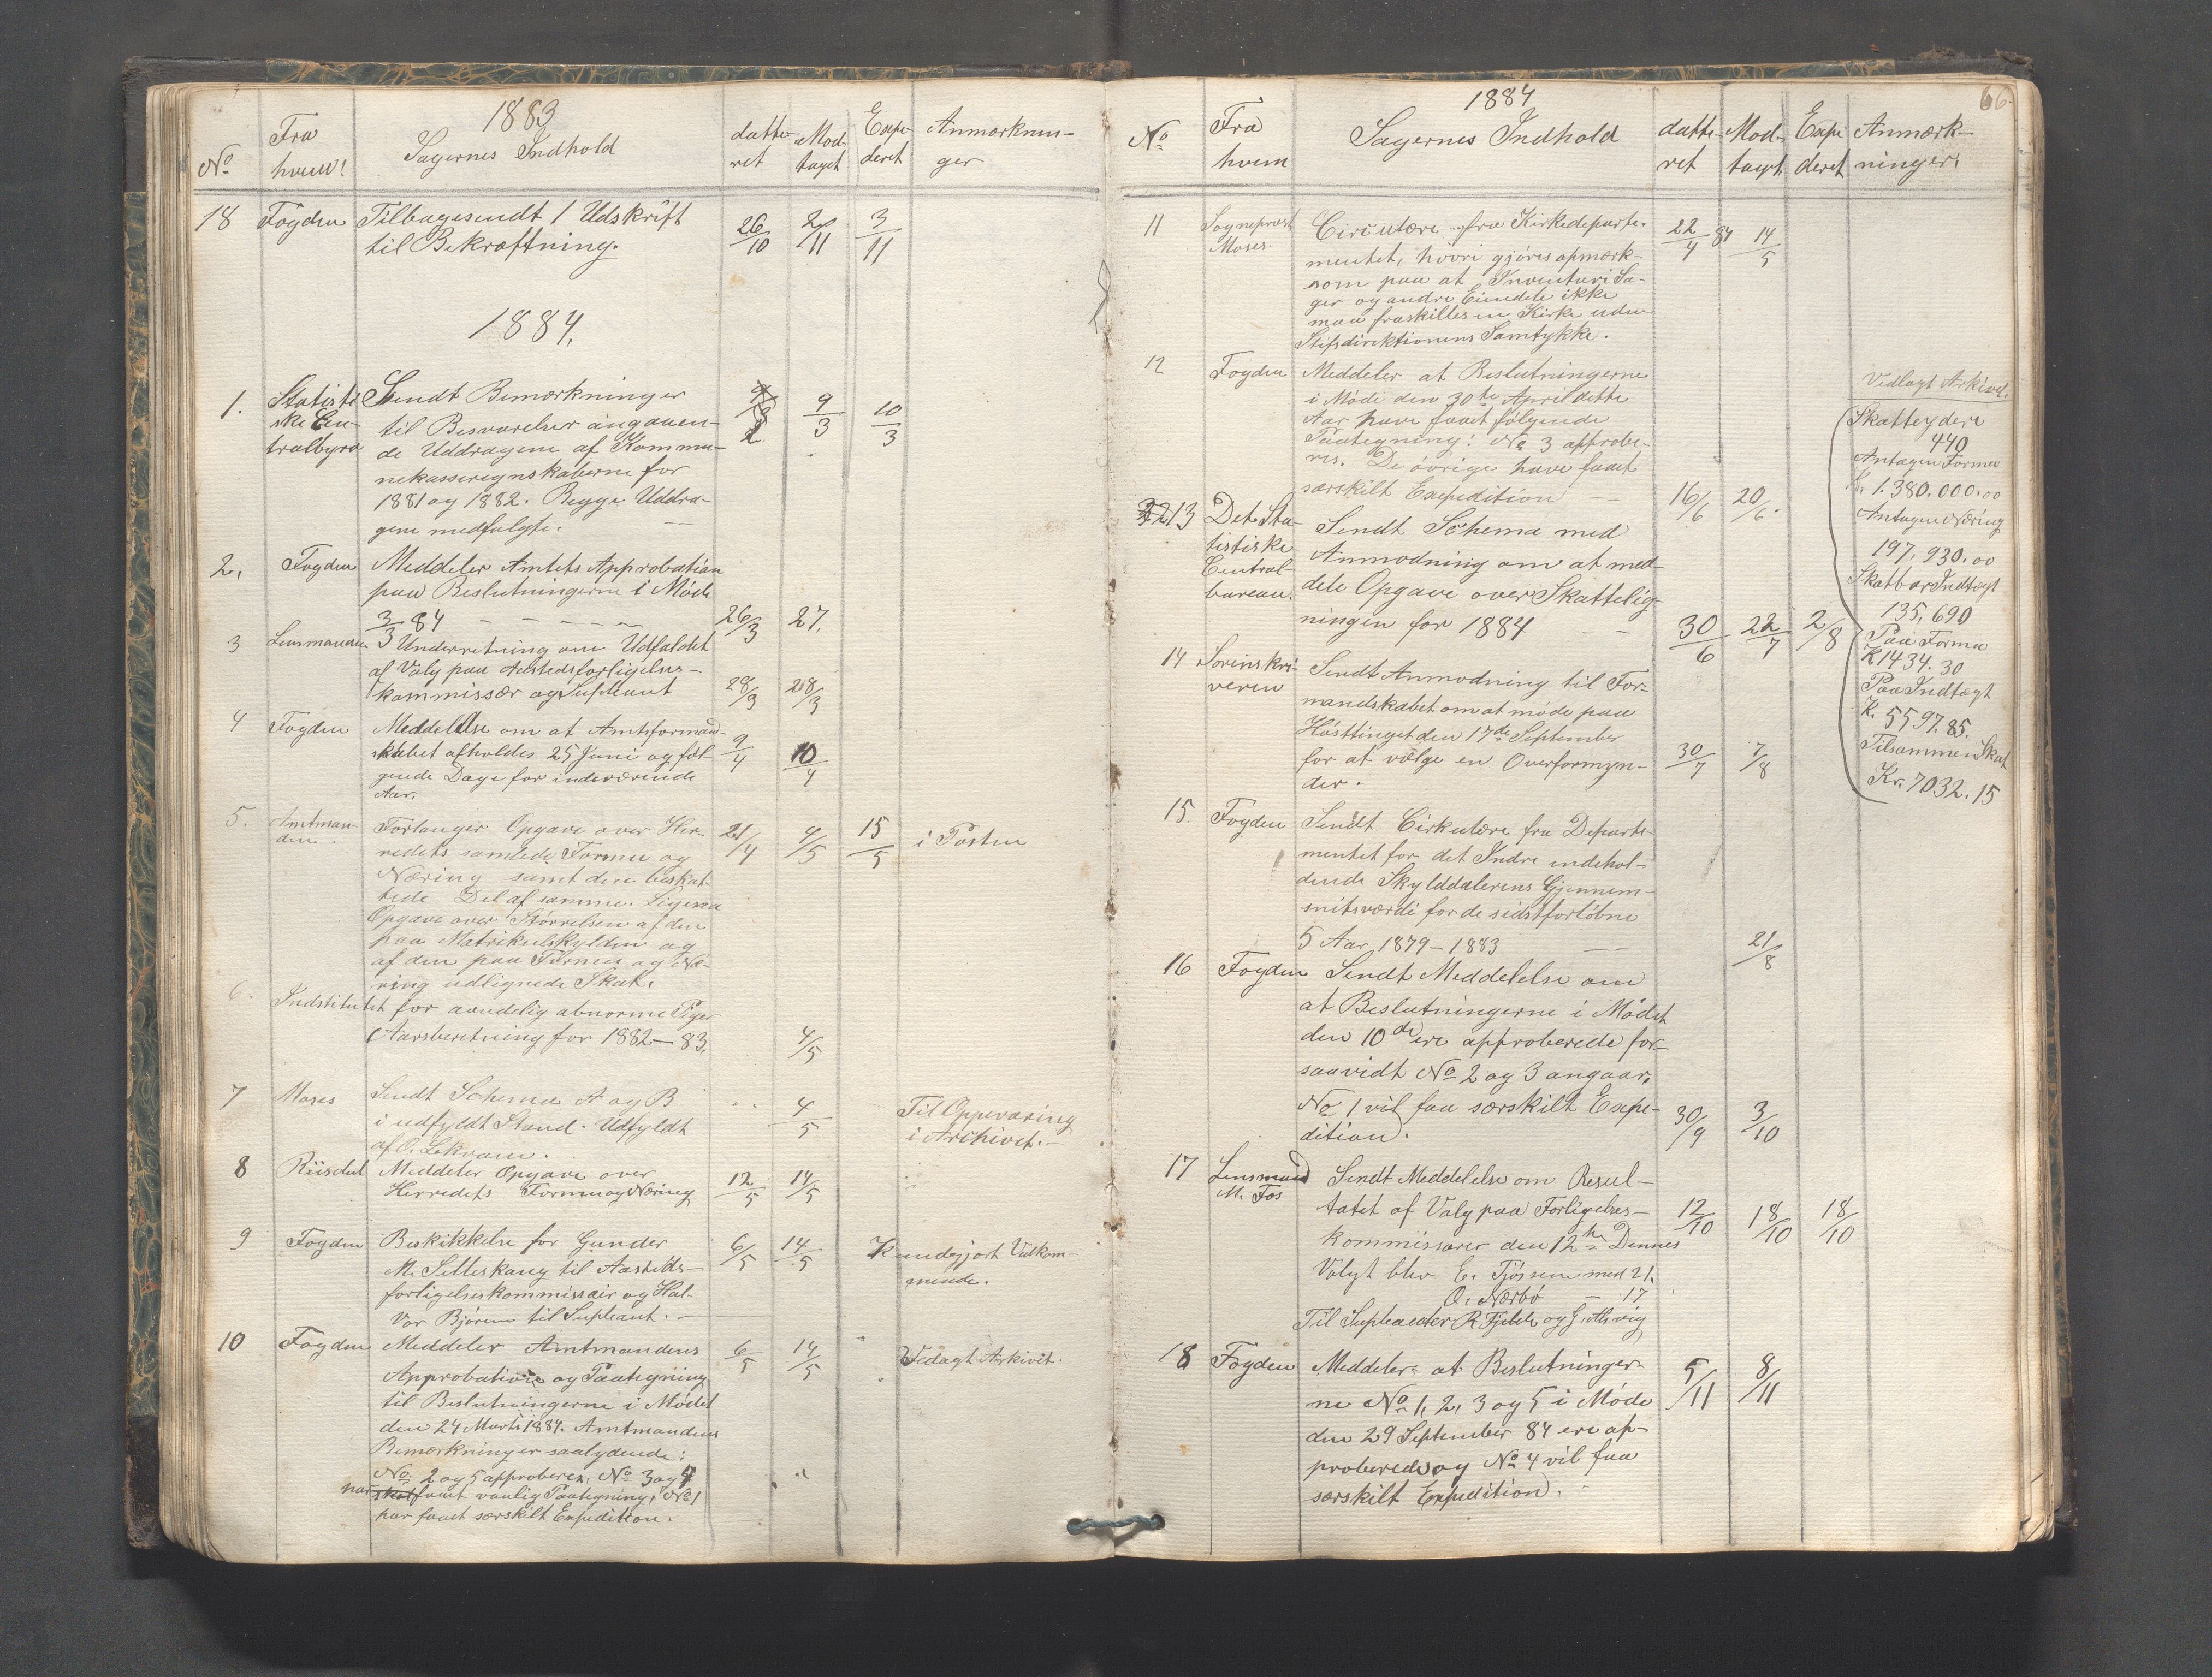 1883
No Fra hvem! Sagernes Indhold datteret Modtaget Expederet Anmærkninger
18 Fogden Tilbagesendt 1 Udskrift 26/10 2/11 3/11
til Bekræftning.
1884.
1. Statisti Sendt Bemærkninger 9/3 10/3
ske Cen- til Besvarelser angaaen-
tralbyro de Uddragene af Kommu-
nekasseregnskaberne for
1881 og 1882. Begge Uddra-
gene medfulgte.
2. Fogden Meddeler Amtets Approbation
paa Beslutningerne i Møde
3/3 84 26/3 27.
3 Lensmanden Underretning om Udfaldet
af Valg paa Aastedsforligelses-
kommissær og Supleant 28/3 28/3
4 Fogden Meddelelse om at Amtsformand-
skabet afholdes 25 Juni og føl- 9/4 10/4
gende Dage for indeværende
Aar.
5. Amtman- Forlanger Opgave over Her- 21/4 4/5 15/5 i Posten
den. redets samlede Formue og
Næring samt den beskat-
tede Del af samme. Ligesaa
Opgave over Størrelsen af den
paa Matrikulskylden og
af den paa Formue og Næ-
ring udlignede Skat.
6. Indstitutet for aandelig abnorme Piger
Aarsberetning for 1882-83. 4/5
7 Moses Sendt Schema A og B 4/5 Til Oppevaring
i udfyldt Stand. Udfyldt i Archivet.-
af O. Lekvam.
8 Riisdal Meddeler Opgave over 12/5 14/5
Herredets Formue og Næring
9 Fogden Beskikkelse for Gunder 6/5 14/5 Kundgjort Vedkom-
M. Selleskaug til Aasteds- mende.
forligelseskommissair og Hal-
vor Bjorum til Supleant.
10 Fogden Meddeler Amtmandens 6/5 14/5 Vedlagt Arkivet.
Approbation og Paategning
til Beslutningerne i Mødet
den 24 Marts 1884. Amtmandens
Bemærkninger saalydende:
No 2 og 5 approberes, No 3 og 4
har faaet vanlig Paategning, No 1
har faaet særskilt Expedition.
66.
1884
No Fra hvem Sagernes Indhold datteret Modtagt Expederet Anmærkninger.
11 Sogneprest Circulære fra Kirkedeparte- 22/4 84 14/5
Moses mentet, hvori gjøres opmærk-
som paa at Inventari Sa-
ger og andre Eiendele ikke
maa fraskilles en Kirke uden
Stiftsdirektionens Samtykke.
12 Fogden Meddeler at Beslutningerne
i Møde den 30te April dette
Aar have faaet følgende
Paategning: No 3 approbe-
res. De øvrige have faaet
særskilt Expedition 16/6 20/6.
13 Det Sta- Sendt Schema med
tistiske Anmodning om at med-
Central- dele Opgave over Skattelig-
bureau. ningen for 1884 30/6 22/7 2/8
Vedlagt Arkivet.
Skatteydere
440
Antagen Formue
K. 1.380.000.00
Antagen Næring
197,930.00
Skatbar Indtægt
135,690
Paa Formue
K 1434.30
Paa Indtægt
K. 5597.85.
Tilsammen Skat
Kr. 7032.15
14 Sorenskri- Sendt Anmodning til For-
veren mandskabet om at møde paa
Høsttinget den 17de September
for at vælge en Overformyn- 30/7 7/8
der.
15. Fogden Sendt Cirkulære fra Departe-
mentet for det Indre indehol-
dende Skylddalerens Gjennem-
snitsværdi for de sidstforløbne
5 Aar, 1879-1883 21/8
16 Fogden Sendt Meddelelse om
at Beslutningerne i Mødet
den 10de ere approberede for-
saavidt No 2 og 3 angaar.
No 1 vil faa særskilt Expe- 30/9 3/10
dition.
17 Lensmand Sendt Meddelelse om Resul-
M. Fos tatet af Valg paa Forligelses- 12/10 18/10 18/10
kommissærer den 12te Dennes
Valgt blev E. Tjøssem med 21.
O. Nærbø - 17
Til Supleanter R Fjelde og G.
18 Fogden Meddeler at Beslutninger- 5/11 8/11
ne No 1, 2, 3 og 5 i Møde
den 29 September 84 ere ap-
proberede og No 4 vil faa
særskilt Expedition.